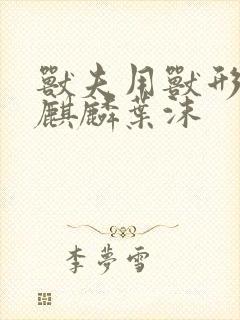 獸夫用獸形
麒麟葉沫
李夢雪